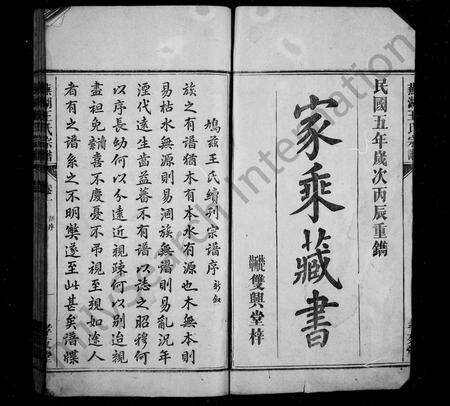 民國五年歲次丙辰重鐫
家乘藏書
雙興堂梓
鳩茲王氏續刊宗譜序 新敘
族之有譜猶木有本水有源也木無本則
易枯水無源則易涸族無譜則易亂況年
湮代遠生齒益蕃不有譜以誌之昭穆何
以序長幼何以分遠近親疎何以別迨親
盡袒免喜不慶憂不弔視至親如途人
者有之譜系之不明獘遂至此甚矣譜牒
蕪湖王氏宗譜 卷一
International